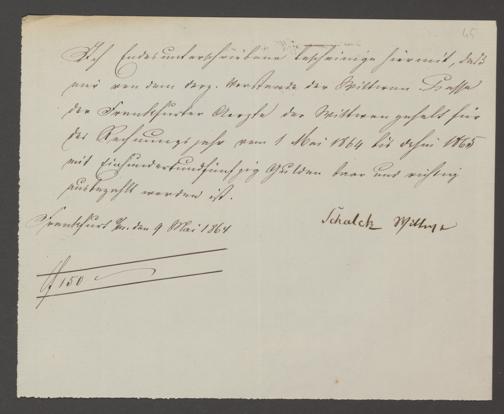 45
Ich Endesunterschriebene bescheinige hiermit, daß
mir von dem derz. Vorstande der Wittwen Kasse
der Frankfurter Aerzte der Wittwengehalt für
das Rechnungsjahr vom 1 Mai 1864 bis dahin 1865
mit Einhundertundfünfzig Gulden baar und richtig
ausbezahlt worden ist.
Frankfurt den 9 Mai 1864
Schalck Wittwe
f 150